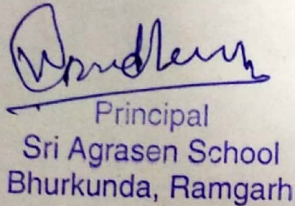 Principal
Sri Agrasen School
Bhurkunda, Ramgarh